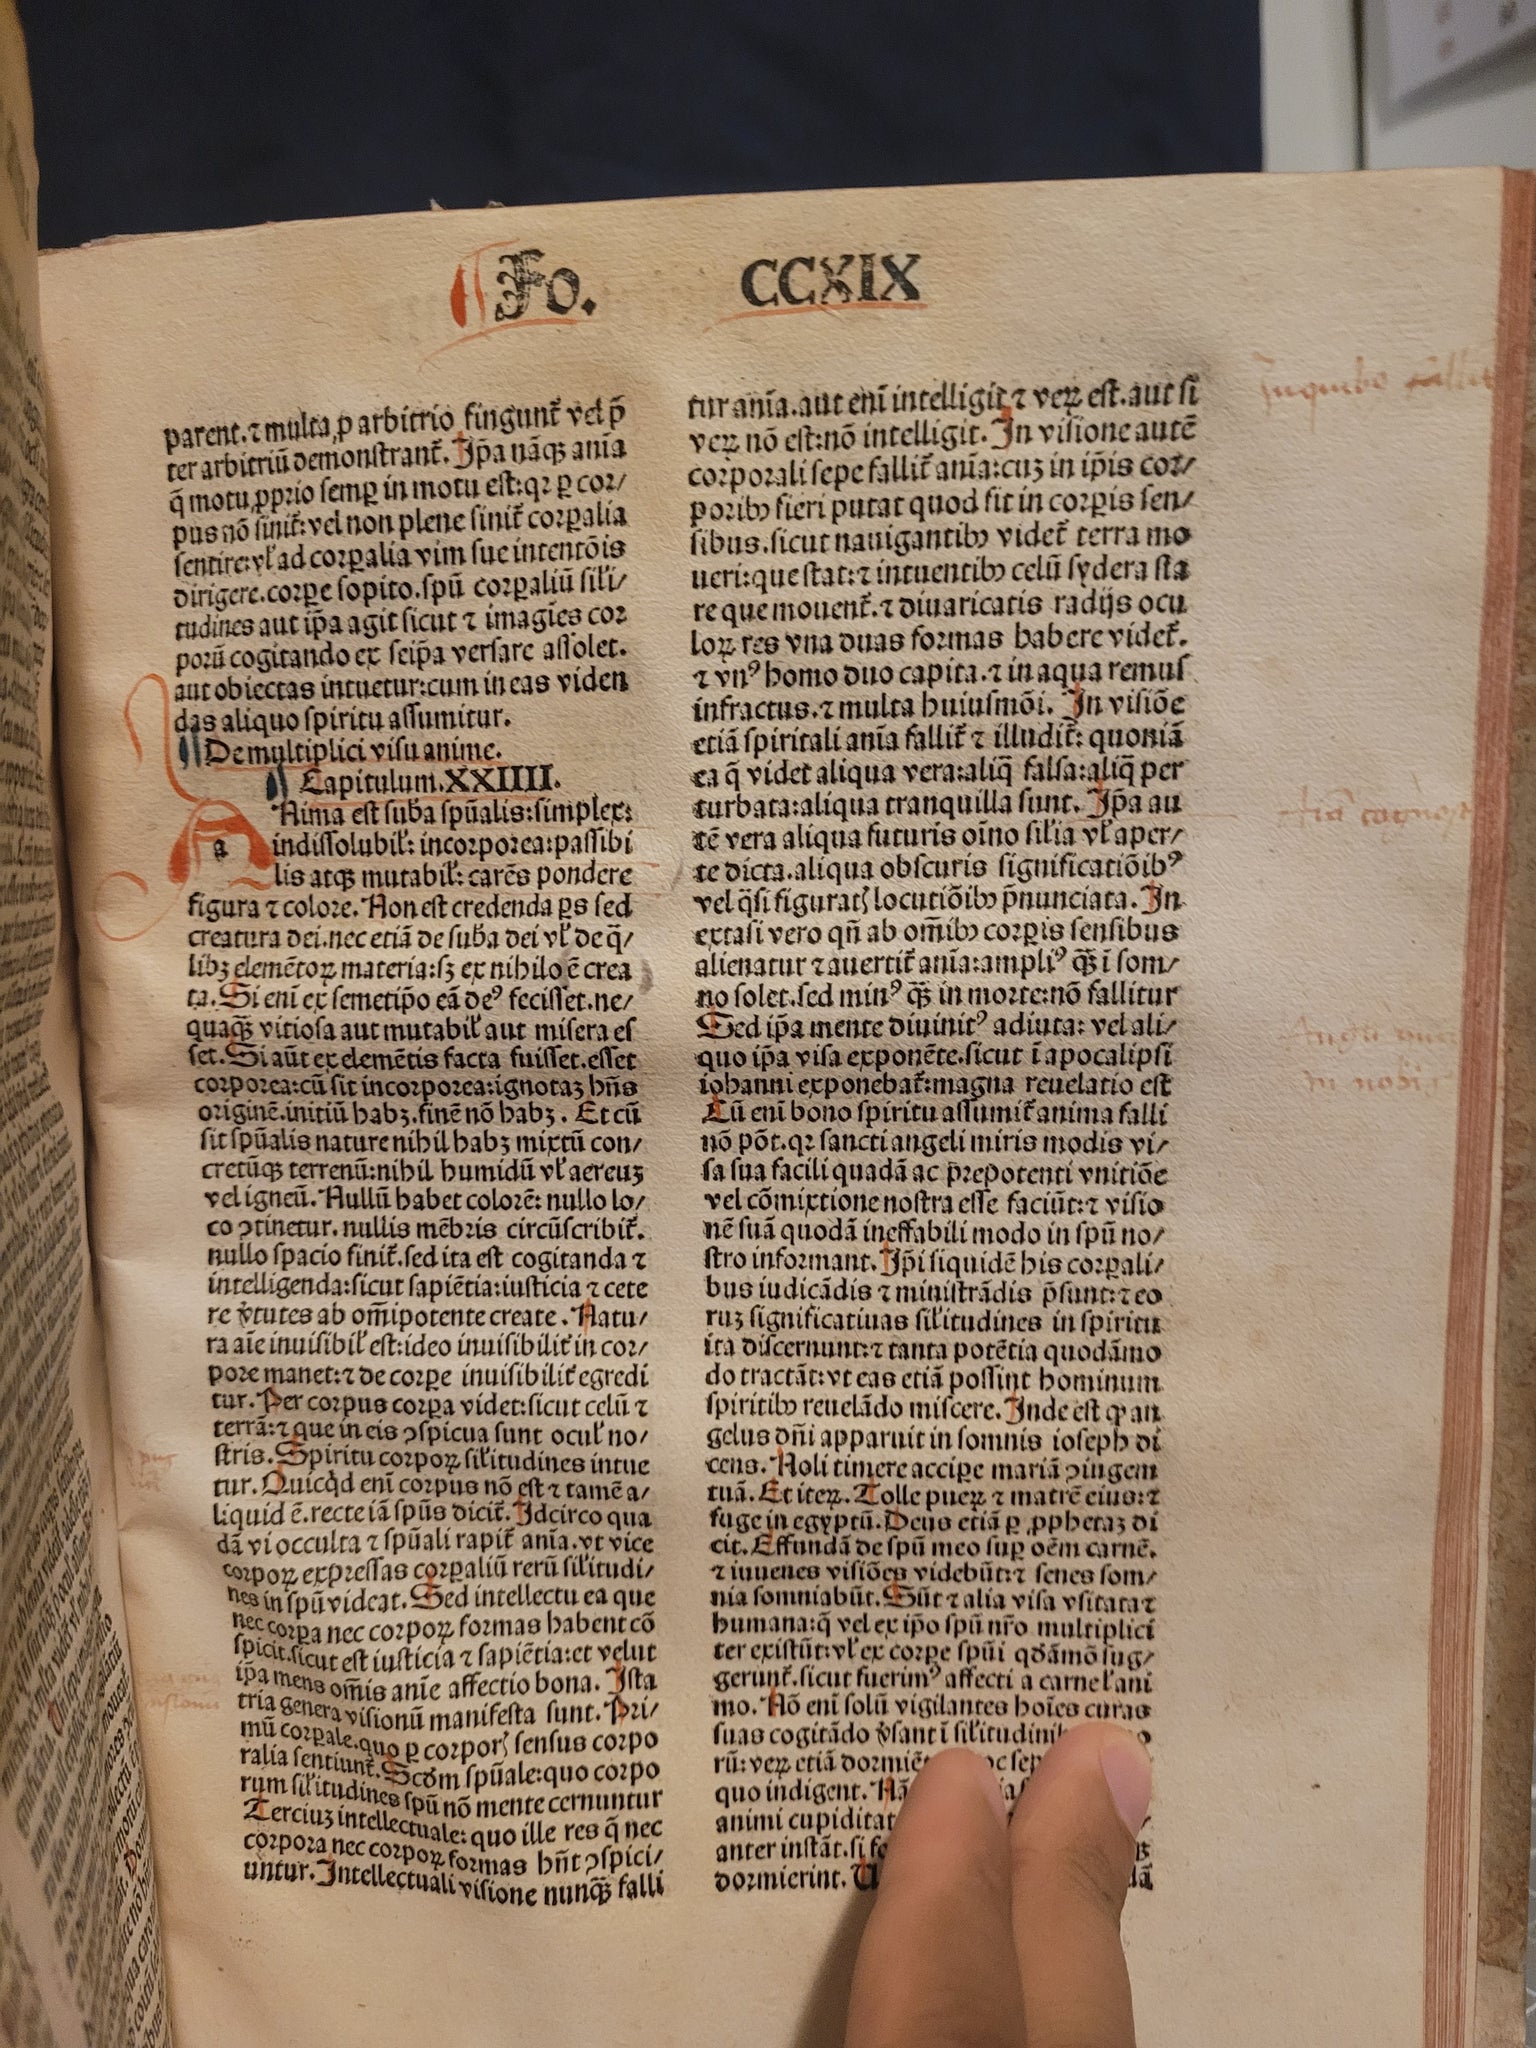 Fo. CCXIX
parent.⁊ multa ꝑ arbitrio fingunt᷑ vel p̄
ter arbitriū demonstrant᷑. Ip̄a nāqꝫ ania
q̄ motu ꝓprio semꝑ in motu est:qꝛ ꝑ cor/
pus nō sinit᷑: vel non plene sinit᷑ corꝑalia
sentire:vl̓ ad corꝑalia vim sue intentōis
dirigere.corꝑe sopito.spū corꝑaliū sil̓i/
tudines aut ip̄a agit sicut ⁊ imagīes cor
porū cogitando ex seip̄a versare assolet.
aut obiectas intuetur:cum in eas viden
das aliquo spiritu assumitur.
De multiplici visu anime.
Capitulum.XXIIII.
a Nima est suba spūalis:simplex:
indissolubil̓: incorporea:passibi
lis atqꝫ mutabil̓: carēs pondere
figura ⁊ colore. Non est credenda ꝑs sed
creatura dei.nec etiā de suba dei vl̓ de q̄/
libꝫ elemētoꝝ materia:sꝫ ex nihilo ē crea
ta. Si eni ex semetip̄o eā deꝰ fecisset.ne/
quaqꝫ vitiosa aut mutabil̓ aut misera es
set. Si aūt ex elemētis facta fuisset.esset
corporea:cū sit incorporea:ignotaꝫ hn̄s
originē.initiū habꝫ.finē nō habꝫ. Et cū
sit spūalis nature nihil habꝫ mixtū con/
cretūqꝫ terrenū:nihil humidū vl̓ aereuꝫ
vel igneū. Nullū habet colorē: nullo lo/
co ꝯtinetur.nullis mēbris circūscribit᷑.
nullo spacio finit᷑.sed ita est cogitanda ⁊
intelligenda:sicut sapiētia:iusticia ⁊ cete
re v̓tutes ab om̄ipotente create. Natu/
ra aīe inuisibil̓ est:ideo inuisibilit᷑ in cor/
pore manet:⁊ de corꝑe inuisibilit᷑ egredi
tur. Per corpus corꝑa videt:sicut celū ⁊
terrā:⁊ que in eis ꝯspicua sunt ocul̓ no/
stris. Spiritu corpoꝝ sil̓itudines intue
tur. Quicq̓d eni corpus nō est ⁊ tamē a/
liquid ē.recte iā spūs dicit᷑. Idcirco qua
dā vi occulta ⁊ spūali rapit᷑ ania.vt vice
corpoꝝ expressas corꝑaliū rerū sil̓itudi/
nes in spū videat. Sed intellectu ea que
nec corꝑa nec corpoꝝ formas habent cō
spicit.sicut est iusticia ⁊ sapiētia:et velut
ip̄a mens om̄is anīe affectio bona. Ista
tria genera visionū manifesta sunt. Pri/
mū corꝑale.quo ꝑ corpoꝝ sensus corpo
ralia sentiunt᷑. Scd̓m spūale:quo corpo
rum sil̓itudines spū nō mente cernuntur
Terciuꝫ intellectuale: quo ille res q̄ nec
corpora nec corpoꝝ formas hn̄t ꝯspici/
untur. Intellectuali visione nunqꝫ falli
tur anīa.aut eni intelligit ⁊ veꝝ est.aut si
veꝝ nō est:nō intelligit. In visione autē
corporali sepe fallit᷑ anīa:cuꝫ in ip̄is cor/
poribꝰ fieri putat quod fit in corꝑis sen/
sibus.sicut nauigantibꝰ videt᷑ terra mo
ueri:que stat:⁊ intuentibꝰ celū sydera sta
re que mouent᷑.⁊ diuaricatis radijs ocu
loꝝ res vna duas formas habere videt᷑.
⁊ vnꝰ homo duo capita.⁊ in aqua remus
infractus.⁊ multa huiusmōi. In visiōe
etiā spiritali anīa fallit᷑ ⁊ illudit᷑: quoniā
ea q̄ videt aliqua vera:aliq̄ falsa:aliq̄ per
turbata:aliqua tranquilla sunt. Ip̄a au
tē vera aliqua futuris oīno sil̓ia vl̓ aper/
te dicta.aliqua obscuris significatiōibꝰ
vel q̄si figuratꝭ locutiōibꝰ p̄nunciata. In
extasi vero qn̄ ab om̄ibꝰ corꝑis sensibus
alienatur ⁊ auertit᷑ anīa:ampliꝰ qꝫ ī som/
no solet.sed minꝰ qꝫ in morte:nō fallitur
Sed ip̄a mente diuinitꝰ adiuta: vel ali/
quo ip̄a visa exponēte.sicut ī apocalipsi
iohanni exponebat᷑:magna reuelatio est
Cū eni bono spiritu assumit᷑ anima falli
nō pōt.qꝛ sancti angeli miris modis vi/
sa sua facili quadā ac p̄repotenti vnitiōe
vel cōmixtione nostra esse faciūt:⁊ visio
nē suā quodā ineffabili modo in spū no/
stro informant. Ip̄i siquidē his corꝑali/
bus iudicādis ⁊ ministrādis p̄sunt:⁊ eo
ruꝫ significatiuas sil̓itudines in spiritu
ita discernunt:⁊ tanta potētia quodāmo
do tractāt:vt eas etiā possint hominum
spiritibꝰ reuelādo miscere. Inde est ꝙ an
gelus dn̄i apparuit in somnis ioseph di
cens. Noli timere accipe mariā ꝯiugem
tuā. Et iteꝝ. Tolle pueꝝ ⁊ matrē eius:⁊
fuge in egyptū. Deus etiā ꝑ ꝓphetaꝫ di
cit. Effundā de spū meo suꝑ oēm carnē.
⁊ iuuenes visiōes videbūt:⁊ senes som/
nia somniabūt. Sūt ⁊ alia visa vsitata ⁊
humana:q̄ vel ex ip̄o spū nr̄o multiplici
ter existūt:vl̓ ex corꝑe spūi qd̓āmō sug/
gerunt᷑.sicut fuerimꝰ affecti a carne l̓ ani
mo. Nō eni solū vigilantes hoīes curas
suas cogitādo v̓sant ī sil̓itudinib
rū: veꝝ etiā dormiēt
quo indigent. Nā
animi cupiditat
anter instāt.si fo
dormierint.